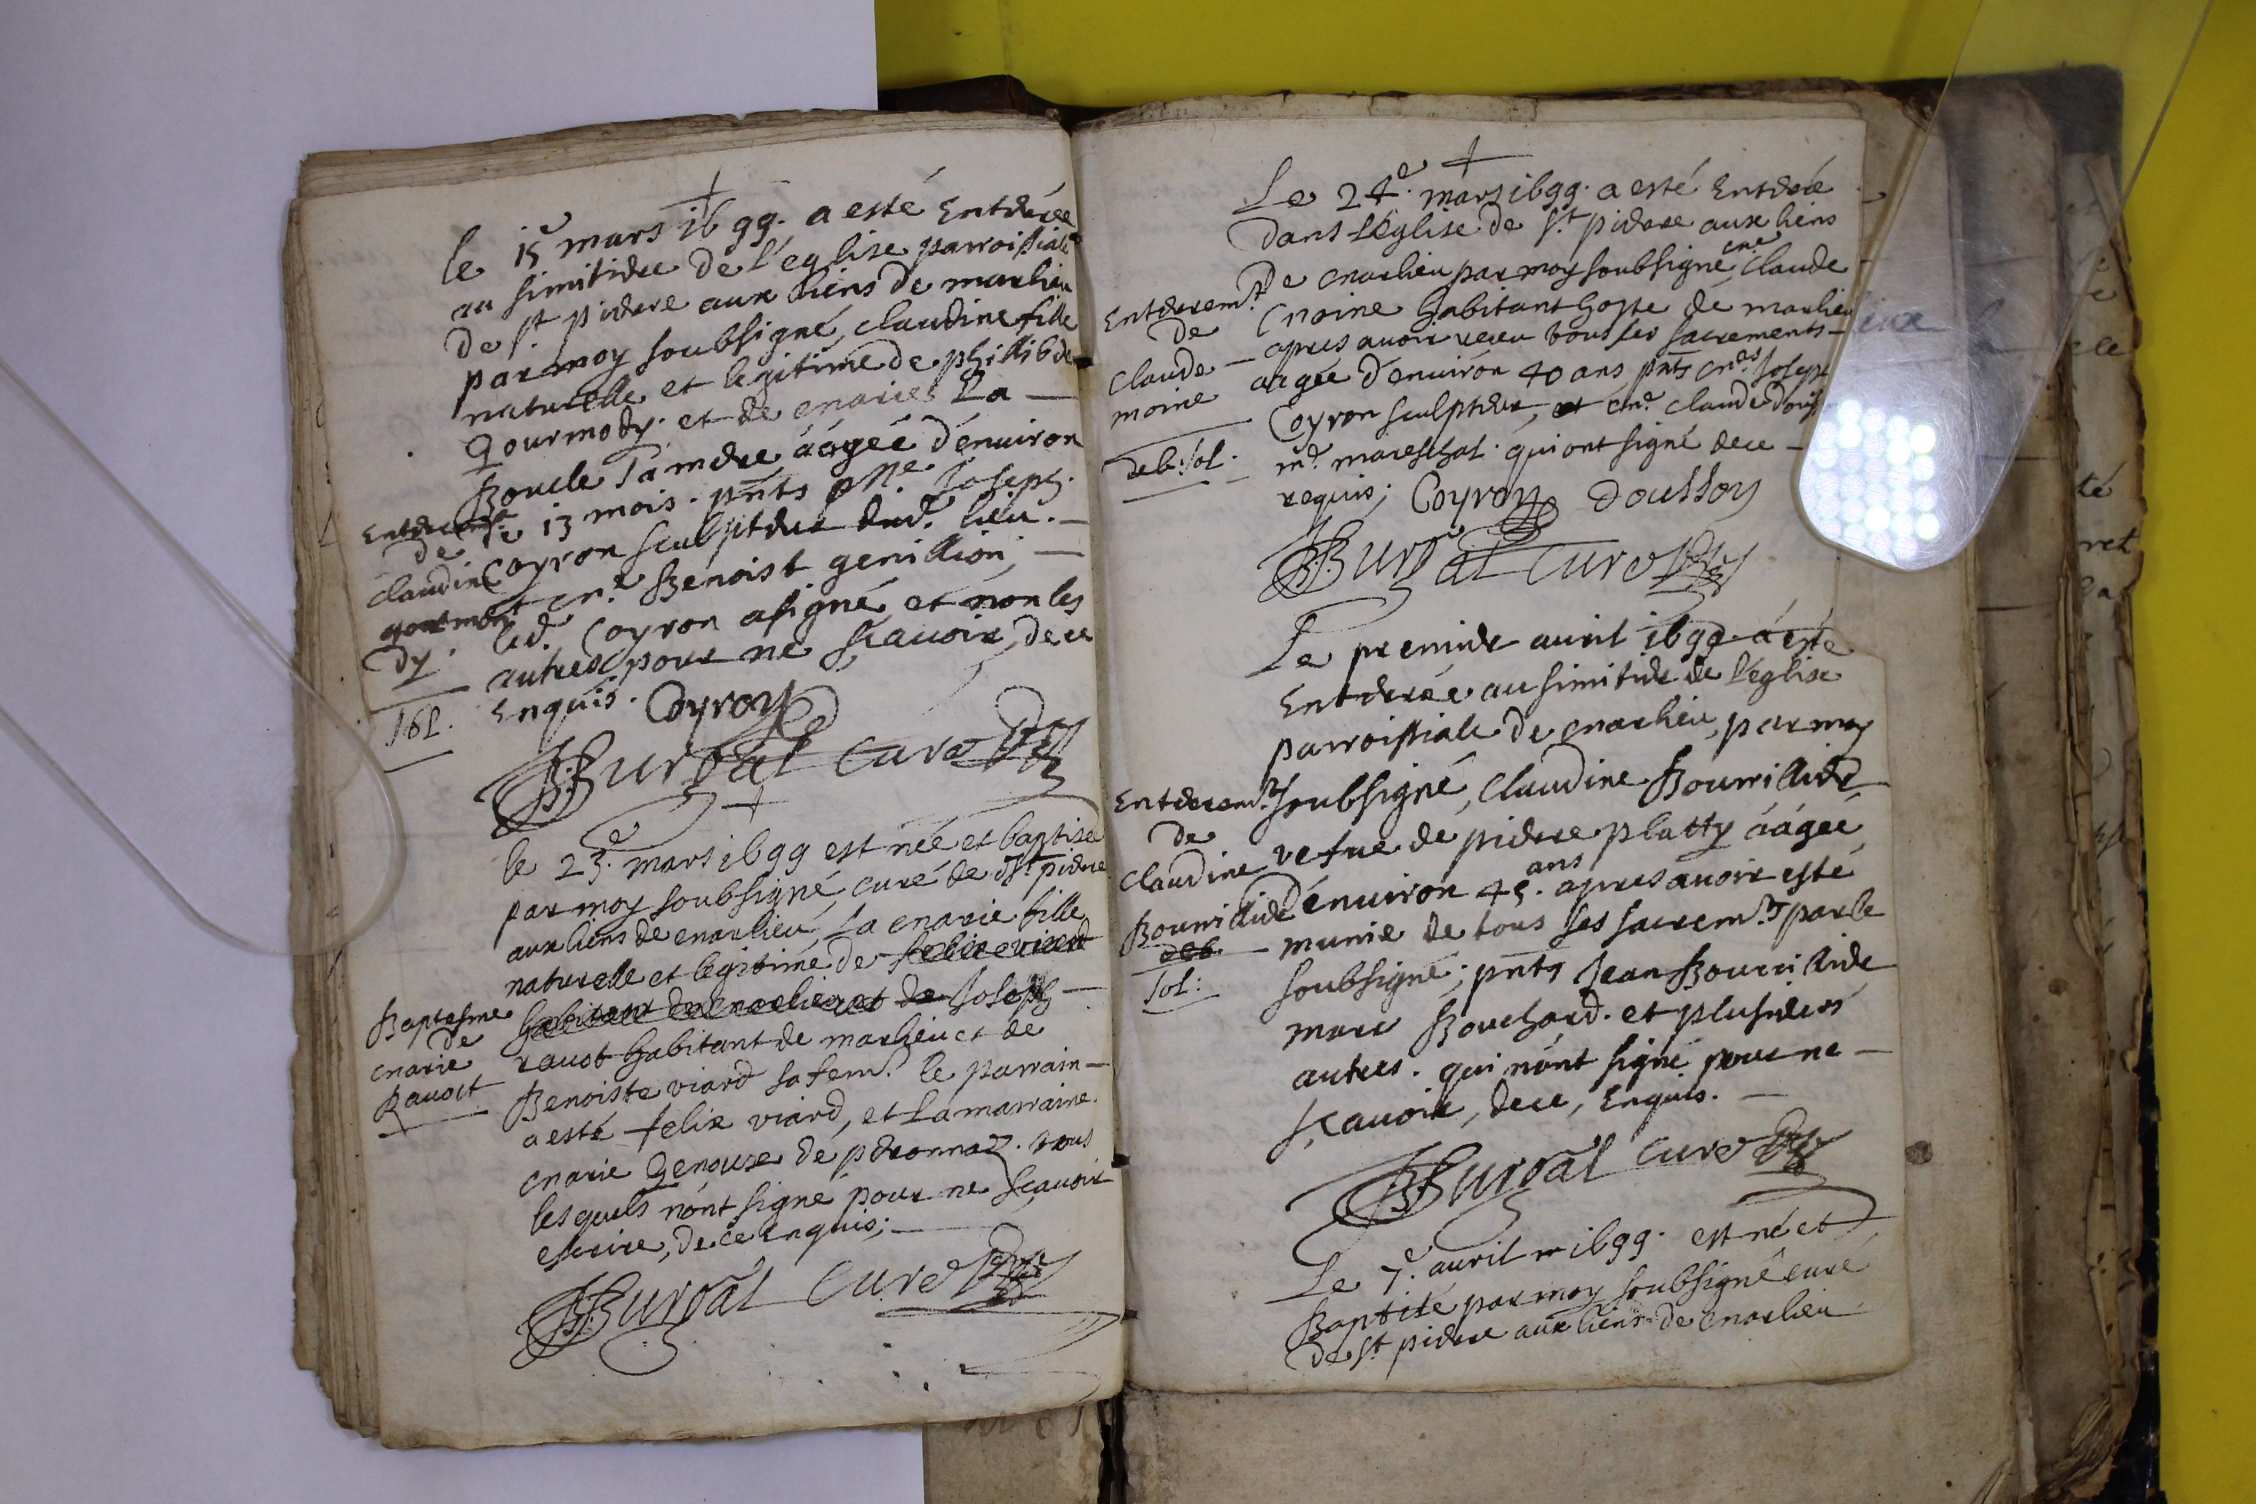 le 15e mars 1699. a esté Entérée
au simitiere de l'eglise parroissiale
de St pierre aux liens de marlieu
par moy soubsigné, claudine fille
naturelle et legitime de philliber
gourmody; et de marie La
Boucle sa mere áàgée d'enuiron
13 mois. pnts Mre Joseph
Coyron sculpteur dud. lieu.
et me Benoist genillion;
led. Coyron a signé et non les
autres pour ne sçauoir, de ce
Enquis. Coyron
Enteremt
de
claudine
gourmo
dy.
sol.
BBurdal curé
le 23e. mars 1699 est née et baptisée
par moy soubsigné, curé de St pierre
aux liens de marlieu, La marie fille
naturelle et legitime de felix viard
habitant de marlieu et de Joseph
rauot habitant de marlieu et de
Benoiste viard sa fem. le parrain
a esté felix viard, et La marraine
marie Genouze de peronnaz. tous
lesquels n'ont signé pour ne sçauoir
escrire, de ce enquis;
Baptesme
de
marie
Rauot
BBurdal Curé
Le 24e. mars 1699. a esté Enteré
dans L'Eglise de St pierre aux liens
de marlieu par moy soubsigné me Claude
moine habitant hoste de marlieu
apres auoir receu tous ses sacrements
aagée d'enuiron 40 ans pnts mres Joseph
Coyron sculpteur, et me claude
md. mareschal. qui ont signé de ce
requis; Coyron Dousson
Enteremt
de
Claude
moine
deb. sol.
BBurdal Curé
Le premier auril 1699 a esté
Enterée au simitiere de l'eglise
parroissiale de marlieu, par moy
soubsigné, Claudine Bourrillider
vefue de pierre platty áàgée
d'enuiron 45. ans apres auoir esté
munie de tous ses sacremts par le
soubsigné; pnts Jean Bourrillider
marc Bouchard. et plusieurs
autres. qui n'ont signé pour ne
sçauoir, de ce, Enquis.
Enteremt
de
Claudine
Bourrillider
deb.
sol:
BBurdal curé
Le 7e. auril 1699. est né et
Baptisé par moy soubsigné curé
de St pierre aux liens de marlieu